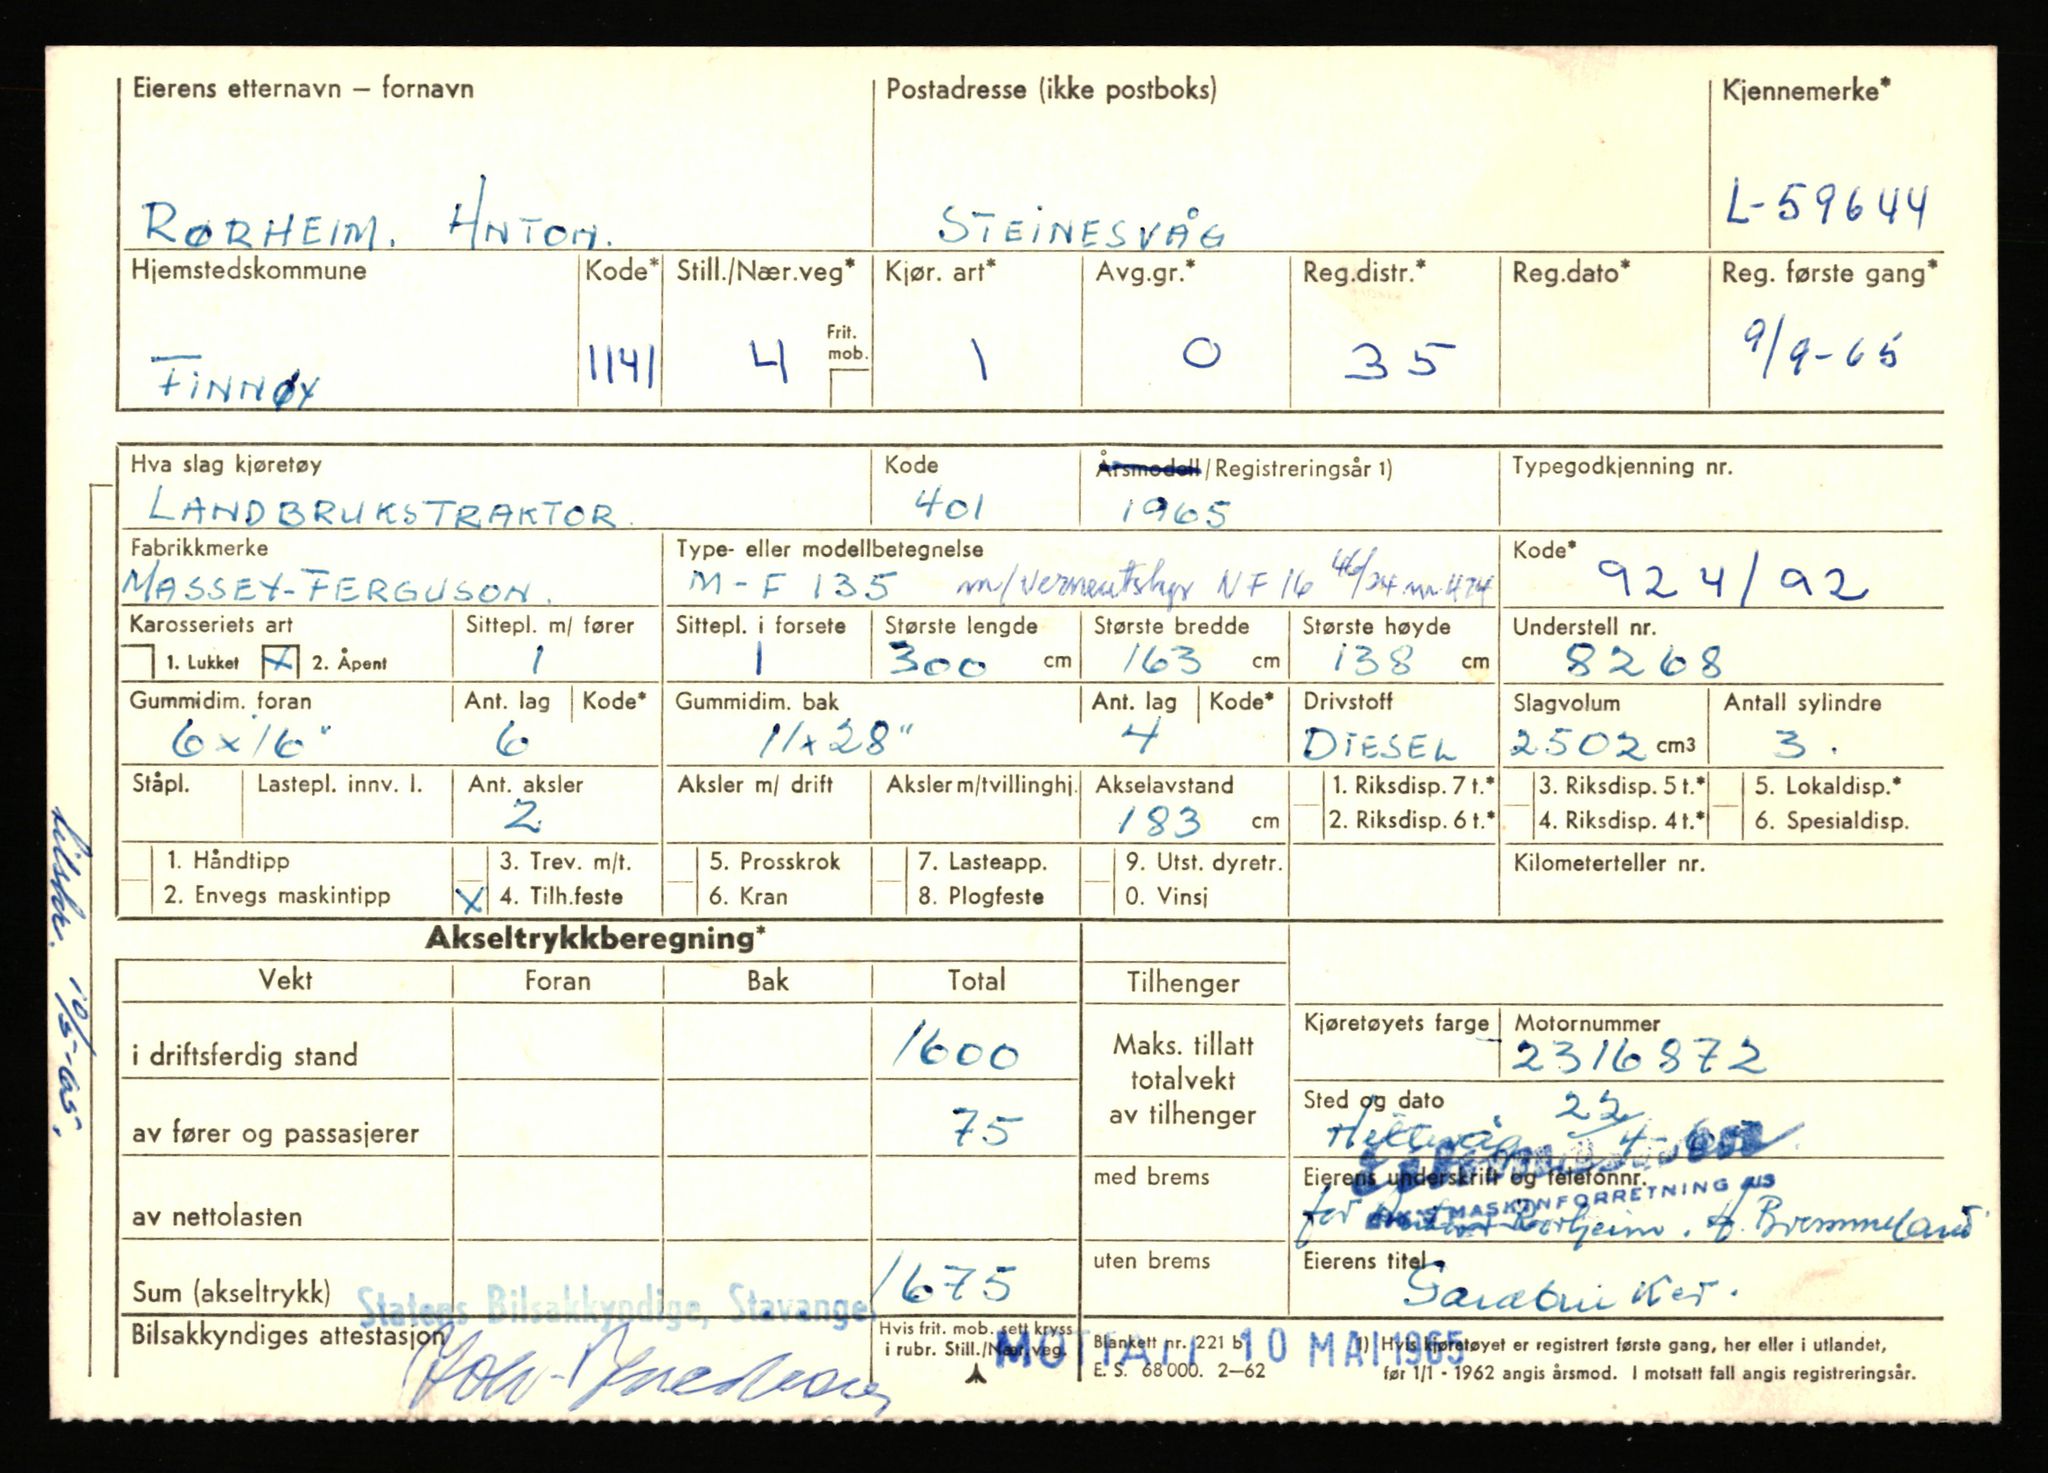 Eierens etternavn – fornavn Postadresse (ikke postboks) Kjennemerke*
RØRHEIM. ANTON. STEINESVÅG L-59644
Hjemstedskommune Kode* Still./Nær.veg* Kjør. art* Avg.gr.* Reg.distr.* Reg.dato* Reg. første gang*
Frit. mob.
FINNØY 1141 4 1 0 35 9/9-65
Hva slag kjøretøy Kode Årsmodell/Registreringsår 1) Typegodkjenning nr.
LANDBRUKSTRAKTOR. 401 1965
Fabrikkmerke Type- eller modellbetegnelse Kode*
MASSEY-FERGUSON. M-F 135 NF 16 46/ 924/92
Karosseriets art Sittepl. m/ fører Sittepl. i forsete Største lengde Største bredde Største høyde Understell nr.
1. Lukket X 2. Åpent 1 1 300 cm 163 cm 138 cm 8268
Gummidim. foran Ant. lag Kode* Gummidim. bak Ant. lag Kode* Drivstoff Slagvolum Antall sylindre
6x16" 6 11x28" 4 DIESEL 2502 cm3 3.
Ståpl. Lastepl. innv. l. Ant. aksler Aksler m/ drift Aksler m/tvillinghj. Akselavstand 1. Riksdisp. 7 t.* 3. Riksdisp. 5 t.* 5. Lokaldisp.*
2 183 cm 2. Riksdisp. 6 t.* 4. Riksdisp. 4 t.* 6. Spesialdisp.
1. Håndtipp 3. Trev. m/t. 5. Prosskrok 7. Lasteapp. 9. Utst. dyretr. Kilometerteller nr.
2. Envegs maskintipp X 4. Tilh.feste 6. Kran 8. Plogfeste 0. Vinsj
10/5-65.
Akseltrykkberegning*
Vekt Foran Bak Total Tilhenger
Kjøretøyets farge Motornummer
i driftsferdig stand 1600 Maks. tillatt totalvekt av tilhenger 2316872
Sted og dato
av fører og passasjerer 75 22/4-65
med brems Eierens underskrift og telefonnr.
MASKINFORRETNING A/S
av nettolasten for Rørheim. Bremmeland
uten brems Eierens titel
Sum (akseltrykk) 1675 Gardbruker.
Statens Bilsakkyndige, Stavanger
Bilsakkyndiges attestasjon Hvis frit. mob. sett kryss i rubr. Still./Nær.veg.
10 MAI 1965
Blankett nr. 221 b 1) Hvis kjøretøyet er registrert første gang, her eller i utlandet,
E. S. 68 000. 2–62 før 1/1 - 1962 angis årsmod. I motsatt fall angis registreringsår.